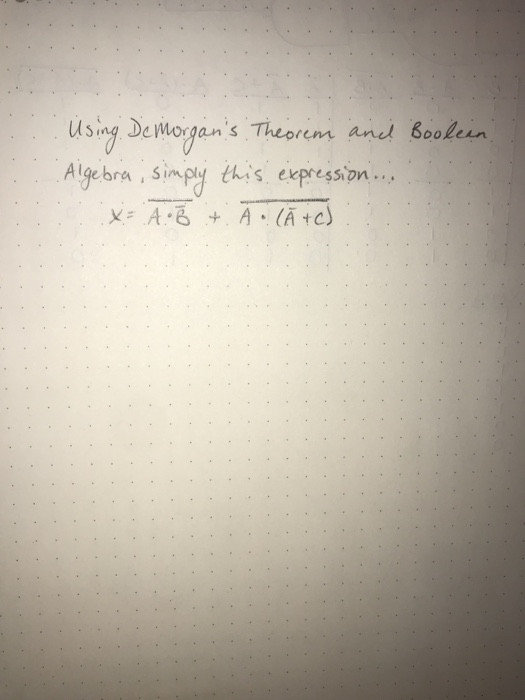 Using DeMorgan's Theorem and Boolean
Algebra, simply this expression...
X = \overline{A·\overline{B}} + \overline{A·(\overline{A}+C)}